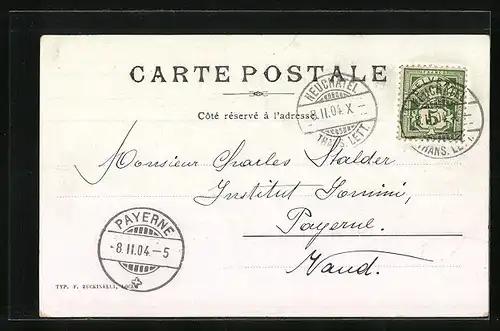 CARTE POSTALE
Côté réservé à l'adresse.
NEUCHATEL
-8.II.04.X-
TRANS. LETT.
FRANCO
5
NEUCHATEL
TRANS. LETT.
Monsieur Charles Stalder
Institut Jomini,
Payerne.
Vaud.
PAYERNE
-8.II.04.-5
TYP. F.